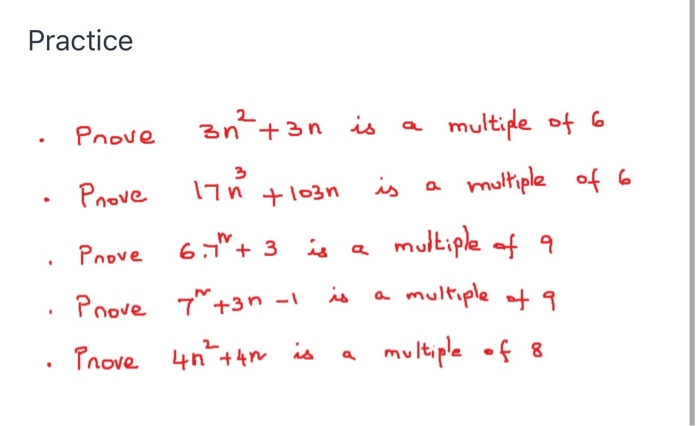 Practice
· Prove 3n²+3n is a multiple of 6
· Prove 17n³ +103n is a multiple of 6
· Prove 6.7ⁿ+ 3 is a multiple of 9
· Prove 7ⁿ+3n -1 is a multiple of 9
· Prove 4n²+4n is a multiple of 8